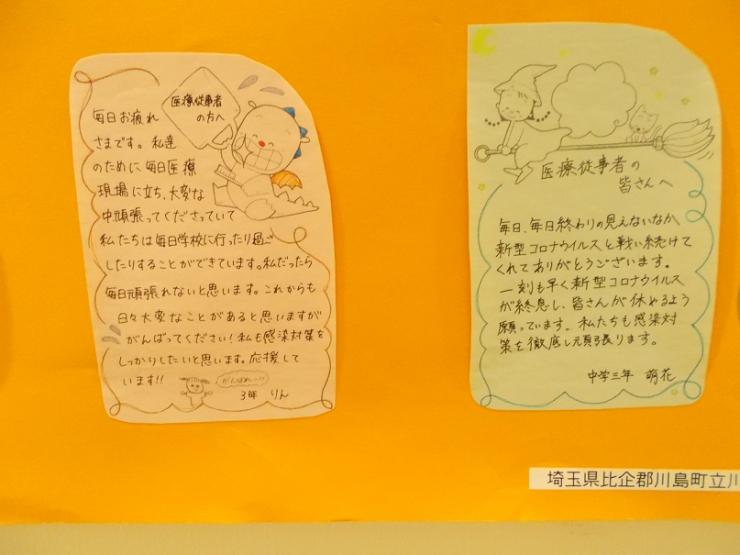 医療従事者
の方へ
毎日お疲れ
さまです。私達
のために毎日医療
現場に立ち、大変な
中頑張ってくださっていて
私たちは毎日学校に行ったり過ご
したりすることができています。私だったら
毎日頑張れないと思います。これからも
日々大変なことがあると思いますが
がんばってください！私も感染対策を
しっかりしたいと思います。応援して
います!!
がんばれーっ!!
3年 りん
医療従事者の
皆さんへ
毎日、毎日終わりの見えないなか
新型コロナウイルスと戦い続けて
くれてありがとうございます。
一刻も早く新型コロナウイルス
が終息し、皆さんが休めるよう
願っています。私たちも感染対
策を徹底し頑張ります。
中学三年 萌花
埼玉県比企郡川島町立川